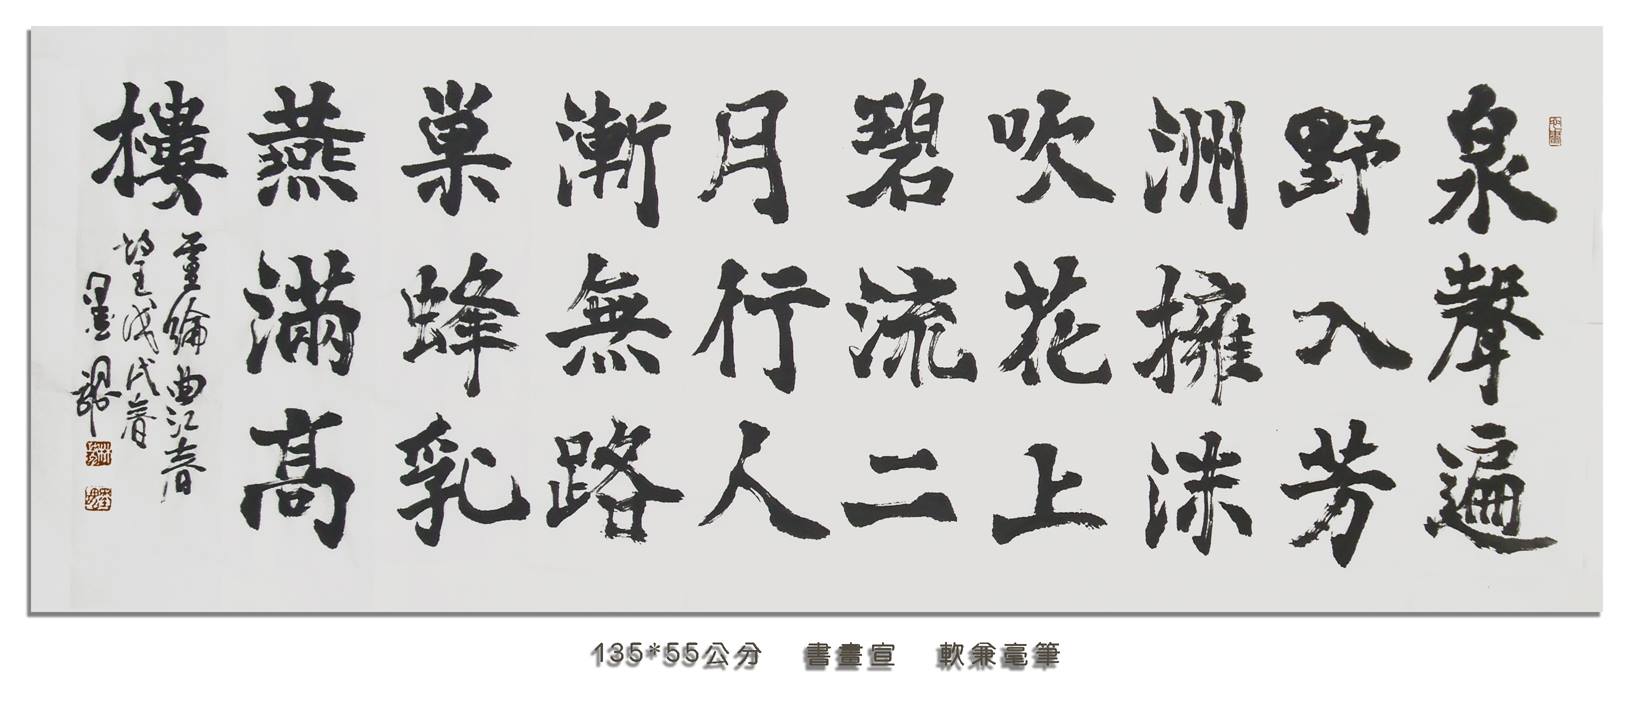 泉聲遍
野入芳
洲擁沫
吹花上
碧流二
月行人
漸無路
巢蜂乳
燕滿高
樓
盧綸曲江春
望戊戌春
墨
135*55公分 書畫宣 軟兼毫筆